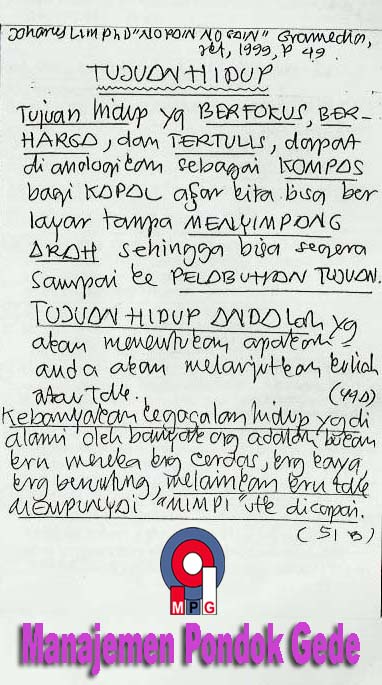 Johanes Lim PhD "NO PAIN NO GAIN" Gramedia,
jkt, 1999, P 49.
TUJUAN HIDUP
Tujuan hidup yg BERFOKUS, BER-
HARGA, dan TERTULIS, dapat
di analogikan sebagai KOMPAS
bagi KAPAL agar kita bisa ber
layar tanpa MENYIMPANG
ARAH sehingga bisa segera
sampai ke PELABUHAN TUJUAN.
TUJUAN HIDUP ANDA lah yg
akan menentukan apakah
anda akan melanjutkan kuliah
atau tdk.
(49A)
Kebanyakan kegagalan hidup yg di
alami oleh banyak org adalah bukan
krn mereka krg cerdas, krg kaya,
krg beruntung, melainkan krn tdk
MEMPUNYAI "MIMPI" utk dicapai.
(51 B)
MPG
Manajemen Pondok Gede